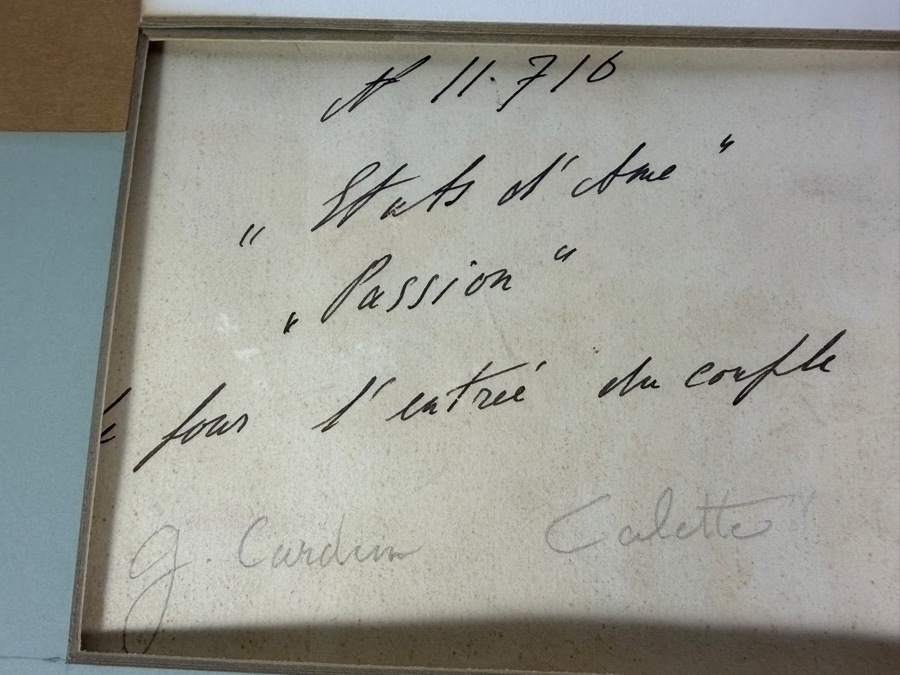 N 11.716
" Etats d'Ame "
" Passion "
pour l'entrée du couple
G. Cardin Calette